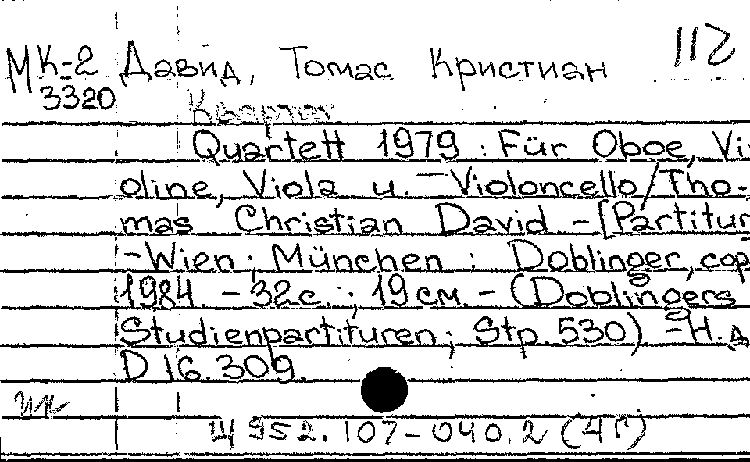 МК-2 Давид, Томас Кристиан 112
3320
Квартет
Quartett 1979 : Für Oboe, Vi-
oline, Viola u. Violoncello / Tho-
mas Christian David - [Partitur
- Wien ; München : Doblinger, cop
1984. - 32 с. ; 19 см. - (Doblingers
Studienpartituren ; Stp. 530) - Н.д
D 16.309.
Щ 952.107-040.2 (4Г)